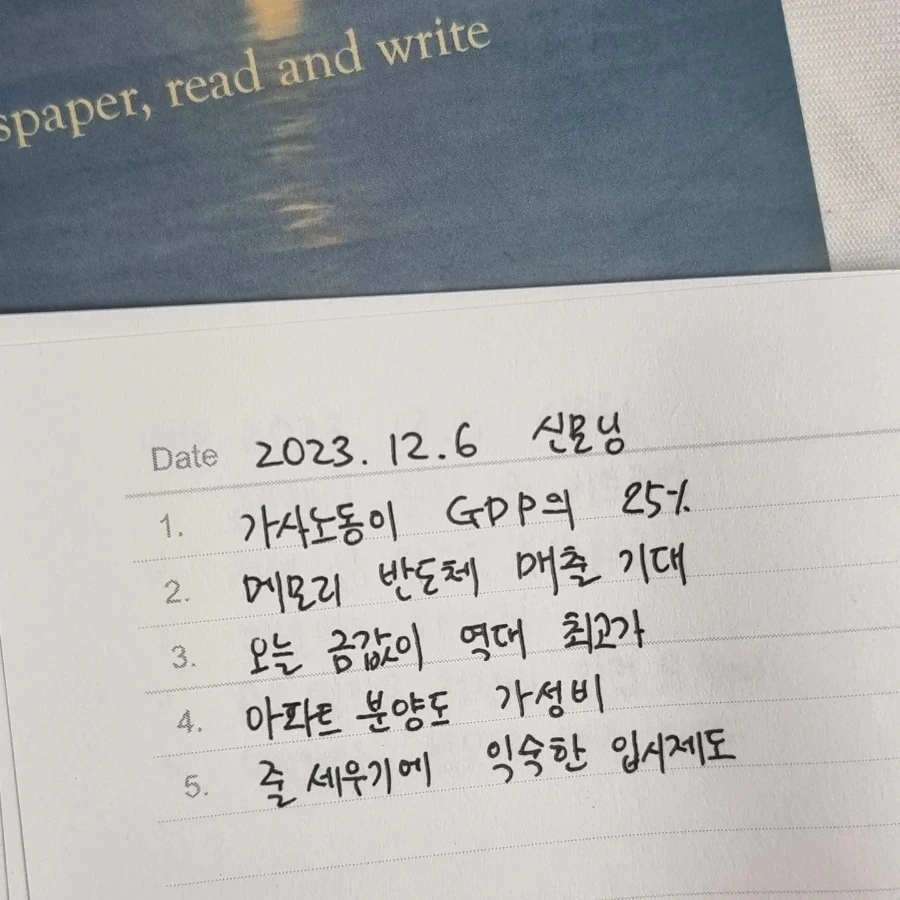 spaper, read and write
Date 2023. 12. 6 신모닝
1. 가사노동이 GDP의 25%
2. 메모리 반도체 매출 기대
3. 오늘 금값이 역대 최고가
4. 아파트 분양도 가성비
5. 줄 세우기에 익숙한 입시제도